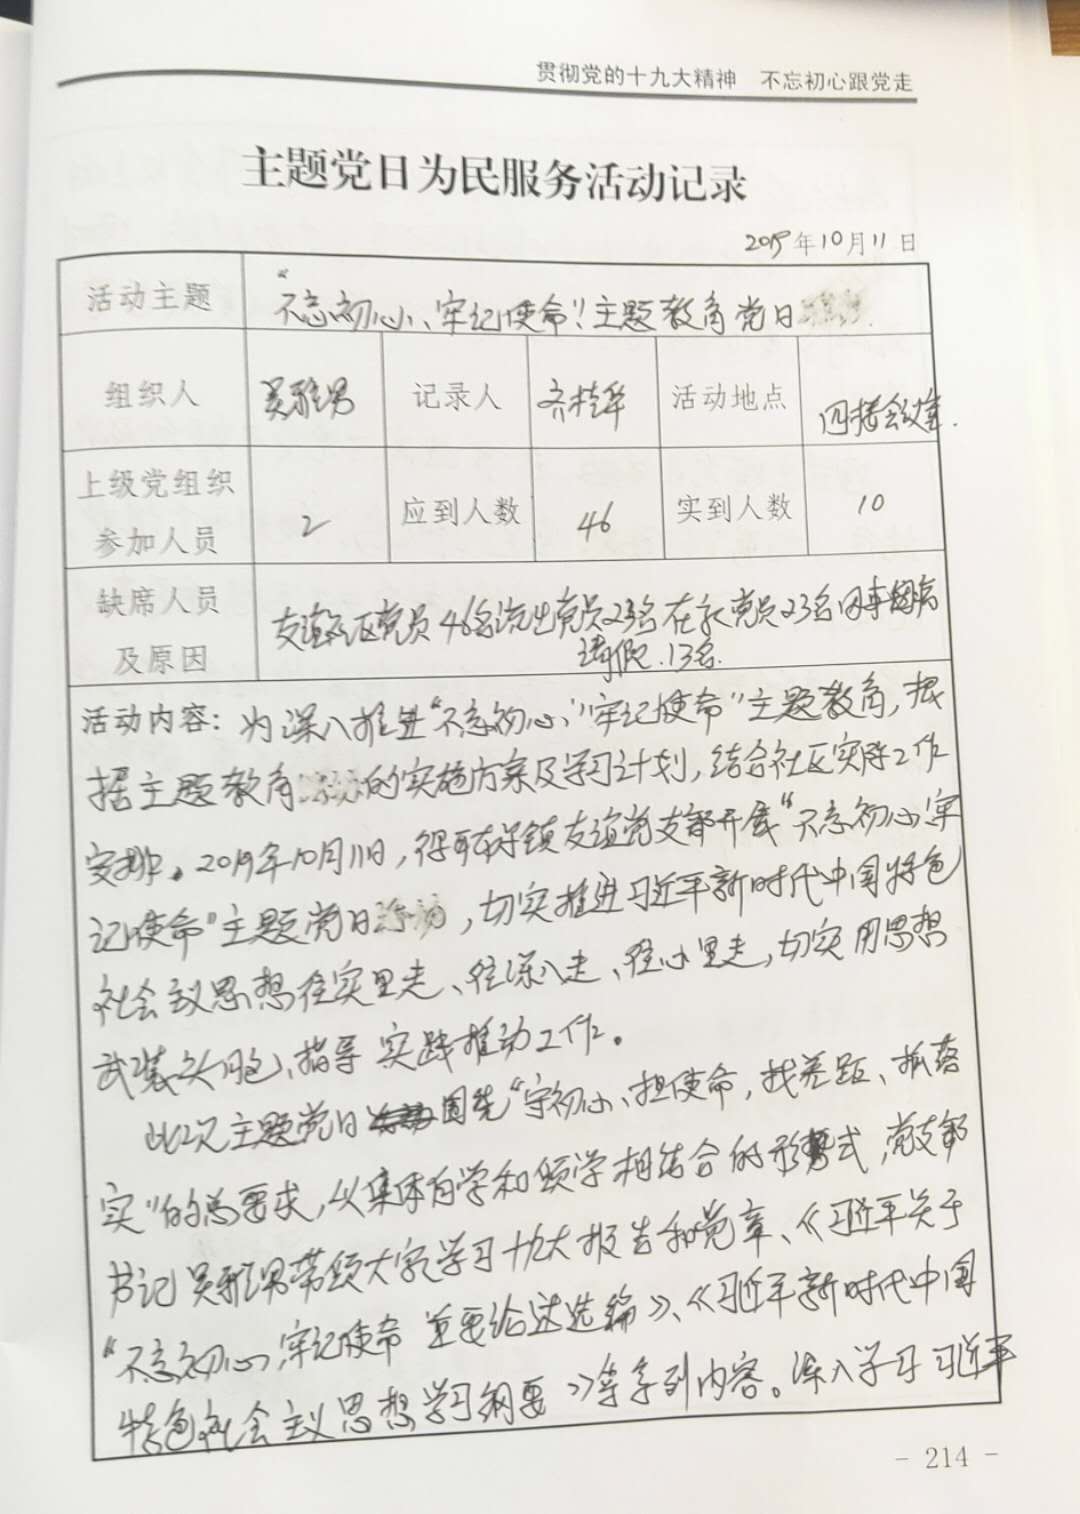 贯彻党的十九大精神 不忘初心跟党走
主题党日为民服务活动记录
2019年10月11日
活动主题 “不忘初心、牢记使命”主题教育党日
组织人 吴雅男 记录人 齐桂华 活动地点 四楼会议室.
上级党组织参加人员 2 应到人数 46 实到人数 10
缺席人员及原因 友谊社区党员46名流出党员23名在家党员23名因事因病
请假.13名.
活动内容：为深入推进“不忘初心、牢记使命”主题教育，根
据主题教育活动的实施方案及学习计划，结合社区实际工作
安排。2019年10月11日，友谊党支部开展“不忘初心牢
记使命”主题党日活动，切实推进习近平新时代中国特色
社会主义思想往实里走、往深入走、往心里走，切实用思想
武装头脑、指导实践推动工作。
此次主题党日围绕“守初心、担使命，找差距、抓落
实”的总要求，以集体自学和领学相结合的形式，党支部
书记吴雅男带领大家学习十九大报告和党章、《习近平关于
“不忘初心，牢记使命重要论述选编》、《习近平新时代中国
特色社会主义思想学习纲要》等系列内容。深入学习习近平
- 214 -